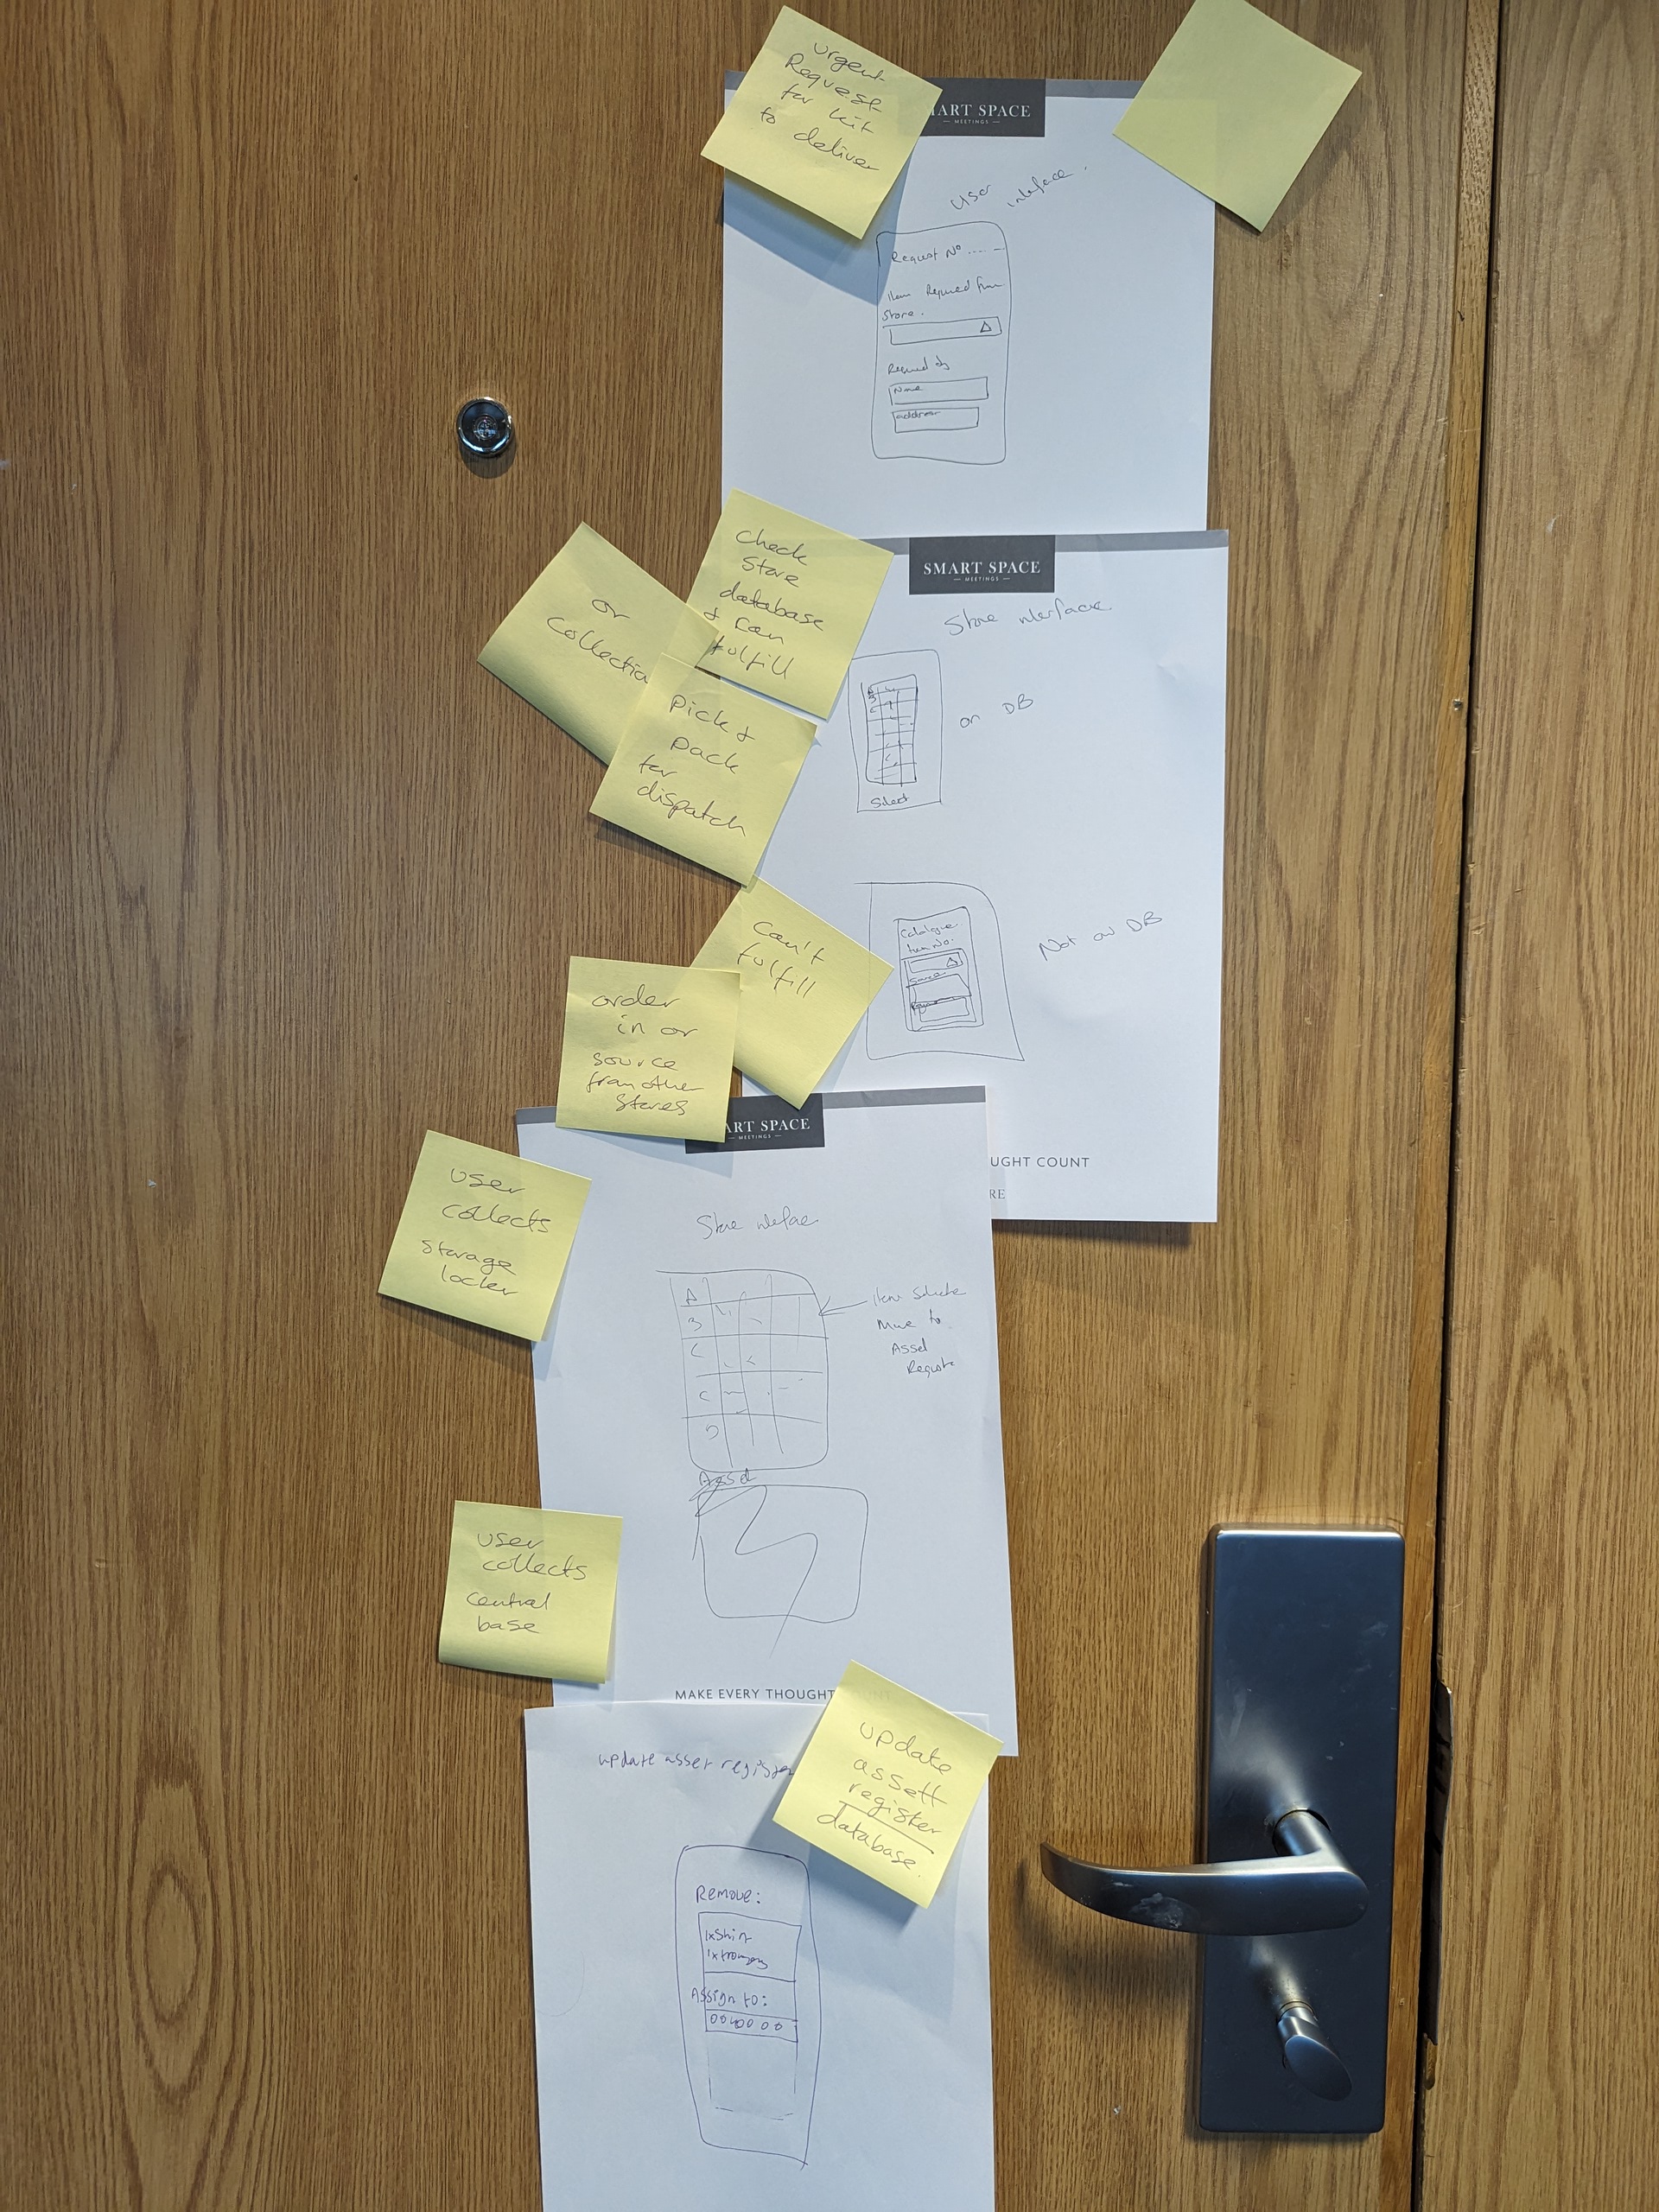 urgent
Request
for kit
to deliver
ART SPACE
— MEETINGS —
User interface.
Request No
Item Required from
Store.
Required by
Name
address
check
store
database
& can
fulfill
or
collection
Pick &
pack
for
dispatch
SMART SPACE
— MEETINGS —
Store
on DB
Select
Can't
fulfill
Catalogue
Item No.
Not on DB
order
in or
source
from other
stores
UGHT COUNT
RE
ART SPACE
— MEETINGS —
user
collects
storage
locker
Store
A
B
C
C
D
Item
Move to
Asset
user
collects
central
base
MAKE EVERY THOUGHT
update asset register
update
assett
register
database.
Remove:
1xShirt
Assign to: